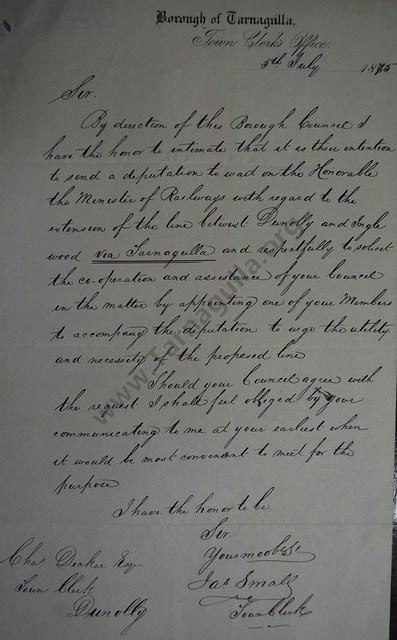 Borough of Tarnagulla.
Town Clerks Office.
5th July 1875
Sir.
By direction of this Borough Council I
have the honor to intimate that it is their intention
to send a deputation to waid on the Honorable
the Minister of Railways with regard to the
extension of the line betwixt Dunolly and Ingle
wood via Tarnagulla and respectfully to solicit
the co-operation and assistance of your Council
in the matter by appointing one of your Members
to accompany the deputation to urge the utility
and necessity of the proposed line
Should your Council agree with
the request I shall feel obliged by your
communicating to me at your earliest when
it would be most convenient to meet for the
purpose
I have the honor to be
Sir.
Your
Jas Small
Town Clerk
Chas Deaker Esq
Town Clerk
Dunolly
www.tarnagulla.org